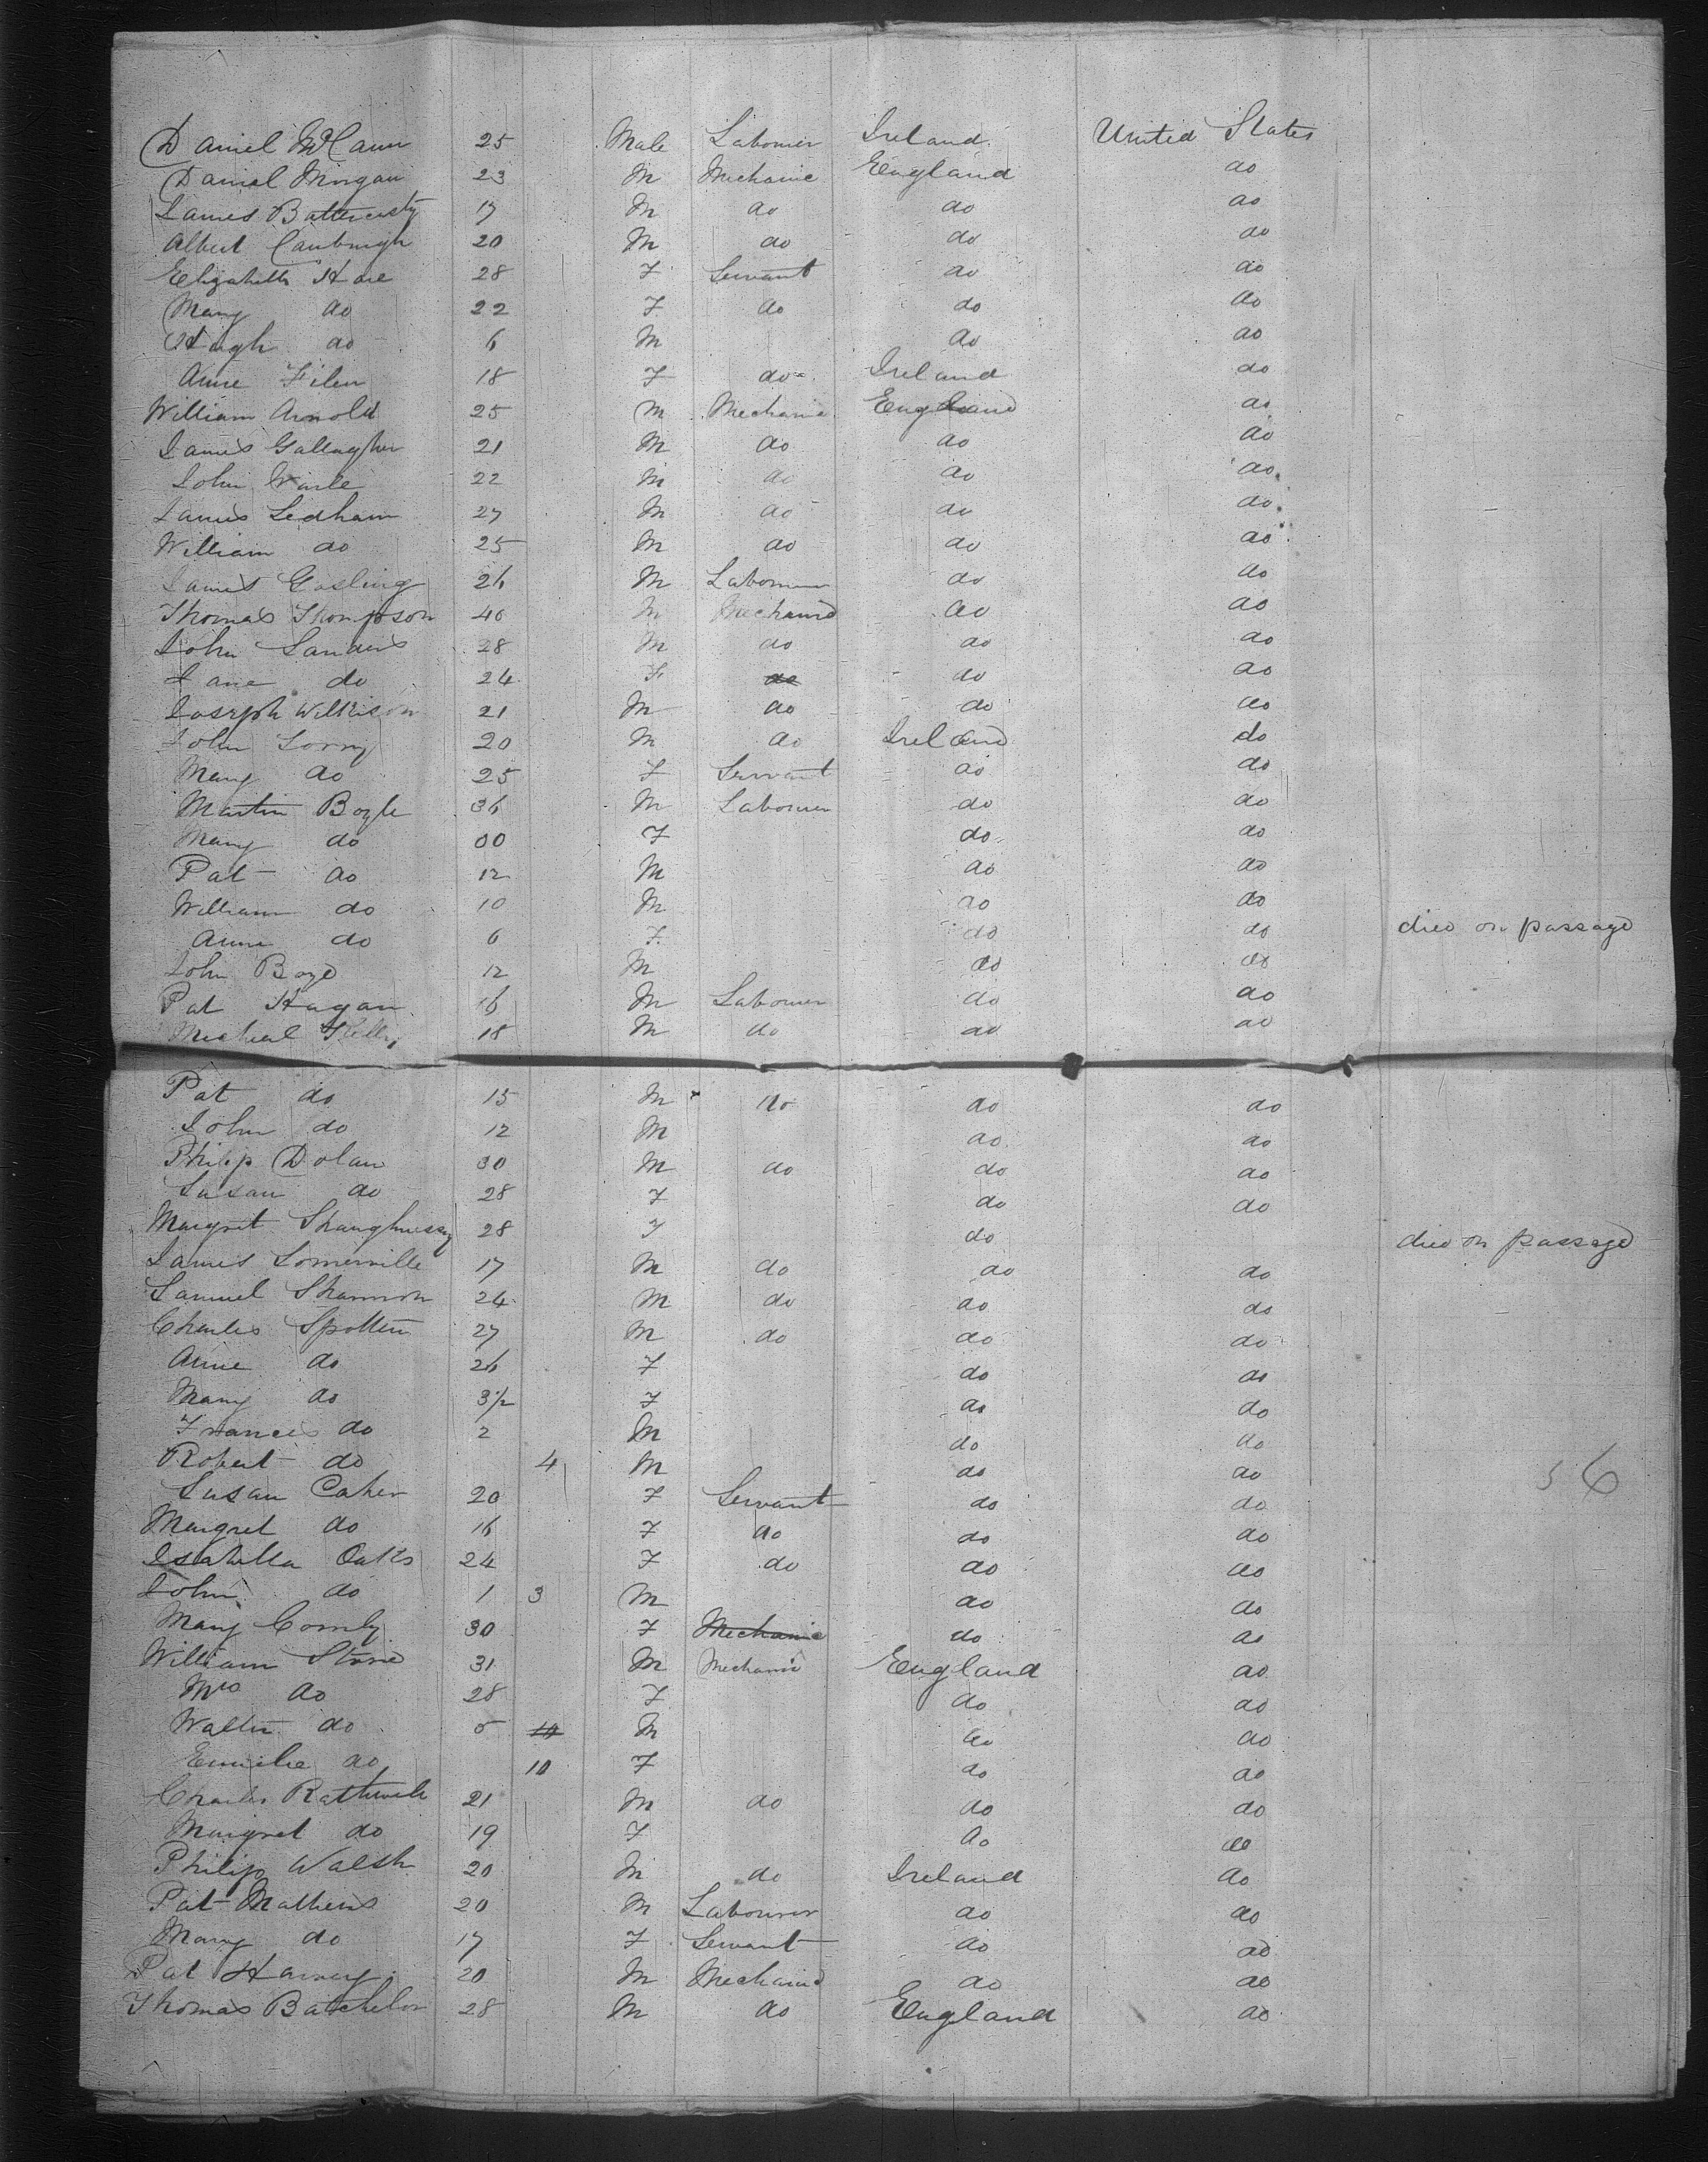 Daniel McCann 25 Male Labourer Ireland United States
Daniel Morgan 23 M Mechanic England do
James Battersby 17 M do do do
Albert 20 M do do do
Elizabeth Hare 28 F Servant do do
Mary do 22 F do do do
Hugh do 6 M do do
Anne Filen 18 F do Ireland do
William Arnold 25 M Mechanic England do
James Gallagher 21 M do do do
John 22 M do do do
James Ledham 27 M do do do
William do 25 M do do do
James Gosling 26 M Labourer do do
Thomas Thompson 40 M Mechanic do do
John Landers 28 M do do do
Jane do 24 F do do do
Joseph Wilkison 21 M do do do
John 20 M do Ireland do
Mary do 25 F Servant do do
Martin Boyle 36 M Labourer do do
Mary do 00 F do do
Pat do 12 M do do
William do 10 M do do
Anne do 6 F do do died on passage
John Boyd 12 M do do
Pat Hagan 16 M Labourer do do
Micheal Kelly 18 M do do do
Pat do 15 M do do do
John do 12 M do do
Philip Dolan 30 M do do do
Susan do 28 F do do
Margret Shaughnessy 28 F do died on passage
James Somerville 17 M do do do
Samuel Shannon 24 M do do do
Charles Spotten 27 M do do do
Anne do 26 F do do
Mary do 3½ F do do
Francis do 2 M do do
Robert do 4 M do do 56
Susan Caher 20 F Servant do do
Margret do 16 F do do do
Isabella Oaks 24 F do do do
John do 1 3 M do do
Mary Comly 30 F Mechanic do do
William Stone 31 M Mechanic England do
Mrs do 28 F do do
Walter do 5 10 M do do
Emilie do 10 F do do
Charles Rathwell 21 M do do do
Margret do 19 F do do
Philip Walsh 20 M do Ireland do
Pat Mathews 20 M Labourer do do
Mary do 17 F Servant do do
Pat Harvey 20 M Mechanic do do
Thomas Batchelor 28 M do England do